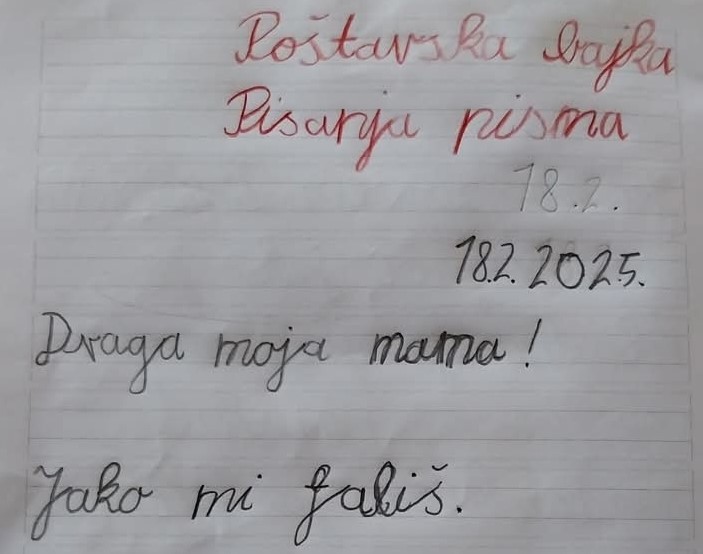 Poštarska bajka
Pisanja pisma
18.2.
18.2.2025.
Draga moja mama!
Jako mi fališ.